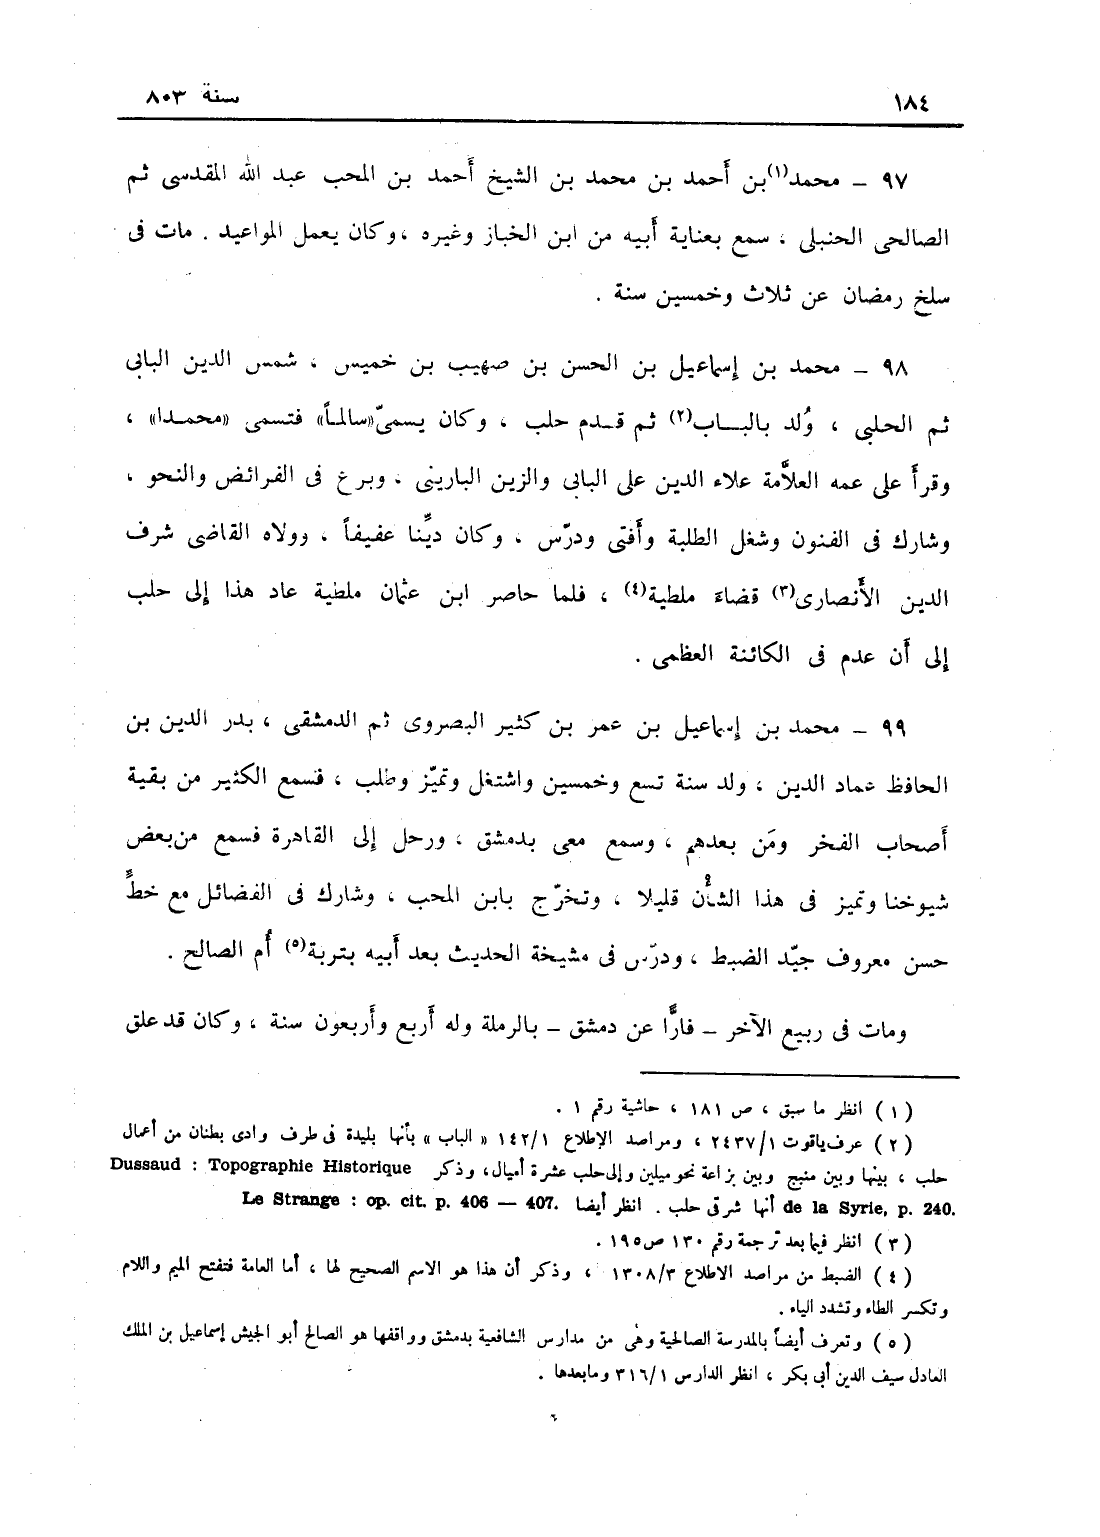 ١٨٤ سنة ٨٠٣
٩٧ ـ محمد(١)بن أَحمد بن محمد بن الشيخ أَحمد بن المحب عبد الله المقدسى ثم
الصالحى الحنبلى ، سمع بعناية أَبيه من ابن الخباز وغيره ،وكان يعمل المواعيد . مات فى
سلخ رمضان عن ثلاث وخمسين سنة .
٩٨ ـ محمد بن إسماعيل بن الحسن بن صهيب بن خميس ، شمس الدين البابى
ثم الحلبى ، وُلد بالبـاب(٢) ثم قـدم حلب ، وكان يسمىّ«سالماً» فتسمى «محمـدا» ،
وقرأَ على عمه العلاَّمة علاء الدين على البابى والزين البارينى ، وبرع فى الفرائض والنحو ،
وشارك فى الفنون وشغل الطلبة وأَفتى ودرّس ، وكان ديِّنا عفيفاً ، وولاه القاضى شرف
الدين الأَنصارى(٣) قضاءَ ملطية(٤) ، فلما حاصر ابن عثمان ملطية عاد هذا إلى حلب
إلى أَن عدم فى الكائنة العظمى .
٩٩ ـ محمد بن إسماعيل بن عمر بن كثير البصروى ثم الدمشقى ، بدر الدين بن
الحافظ عماد الدين ، ولد سنة تسع وخمسين واشتغل وتميّز وطلب ، فسمع الكثير من بقية
أَصحاب الفخر ومَن بعدهم ، وسمع معى بدمشق ، ورحل إلى القاهرة فسمع من بعض
شيوخنا وتميز فى هذا الشأْن قليلا ، وتخرّج بابن المحب ، وشارك فى الفضائل مع خطٍّ
حسن معروف جيّد الضبط ، ودرّس فى مشيخة الحديث بعد أَبيه بتربة(٥) أُم الصالح .
ومات فى ربيع الآخر ـ فارًّا عن دمشق ـ بالرملة وله أَربع وأَربعون سنة ، وكان قد علق
(١) انظر ما سبق ، ص ١٨١ ، حاشية رقم ١ .
(٢) عرف ياقوت ٢٤٣٧/١ ، ومراصد الإطلاع ١٤٢/١ « الباب » بأنها بليدة فى طرف وادى بطنان من أعمال
حلب ، بينها وبين منبج وبين بزاعة نحو ميلين وإلى حلب عشرة أميال، وذكر Dussaud : Topographie Historique
de la Syrie, p. 240. أنها شرقى حلب . انظر أيضا Le Strange : op. cit. p. 406 — 407.
(٣) انظر فيما بعد ترجمة رقم ١٣٠ ص١٩٥ .
(٤) الضبط من مراصد الاطلاع ١٣٠٨/٣ ، وذكر أن هذا هو الاسم الصحيح لها ، أما العامة فتفتح الميم واللام
وتكسر الطاء وتشدد الياء .
(٥) وتعرف أيضاً بالمدرسة الصالحية وهى من مدارس الشافعية بدمشق وواقفها هو الصالح أبو الجيش إسماعيل بن الملك
العادل سيف الدين أبى بكر ، انظر الدارس ٣١٦/١ ومابعدها .